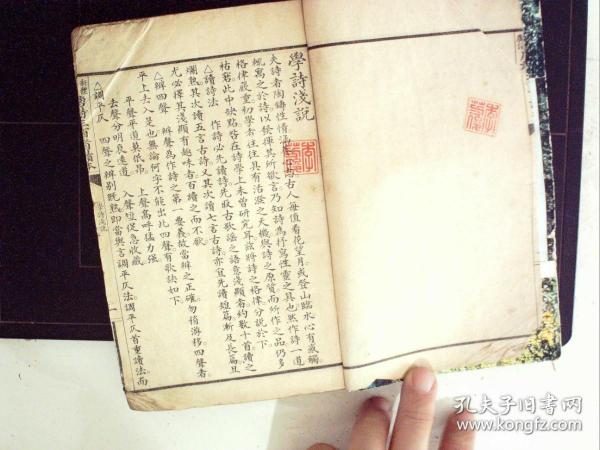 學詩淺說
夫詩者陶鑄性情古人每值看花望月或登山臨水心有感觸
輒寓之於詩以發揮其所欲言乃知詩為抒寫性靈之具也然作詩一道
格律嚴重初學者往往具有活潑之天機與詩之原質而所作之品仍多
枯窘此中缺點咎在詩學上未曾研究耳茲將詩之格律分說於下
△讀詩法 作詩必先讀詩先取古歌謠之語意淺顯者約數十首讀之
爛熟其次讀五言古詩又其次讀七言古詩亦宜先讀短篇漸及長篇且
尤必擇其淺顯有趣味者百讀之而不厭
△辨四聲 辨聲為作詩之第一要義故當辨之正確勿稍游移四聲者
平上去入是也無論何字不能出此四聲有歌訣如下
平聲平道莫低昂 上聲高呼猛力強
去聲分明哀遠道 入聲短促急收藏
△調平仄 四聲之辨別既熟即當與言調平仄法調平仄首重讀法而
學詩淺說
一
孔夫子旧书网
www.kongfz.com